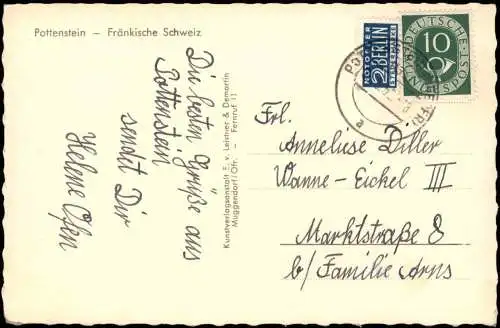 Pottenstein – Fränkische Schweiz
Die besten Grüße aus
Pottenstein
sendet Dir
Helene
Kunstverlagsanstalt E. v. Leistner & Demartin
Muggendorf/Ofr. - Fernruf 11
NOTOPFER
2 BERLIN
STEUERMARKE
DEUTSCHE POST
10
Frl.
Anneliese Diller
Wanne-Eickel III
Marktstraße 8
b/ Familie Arns